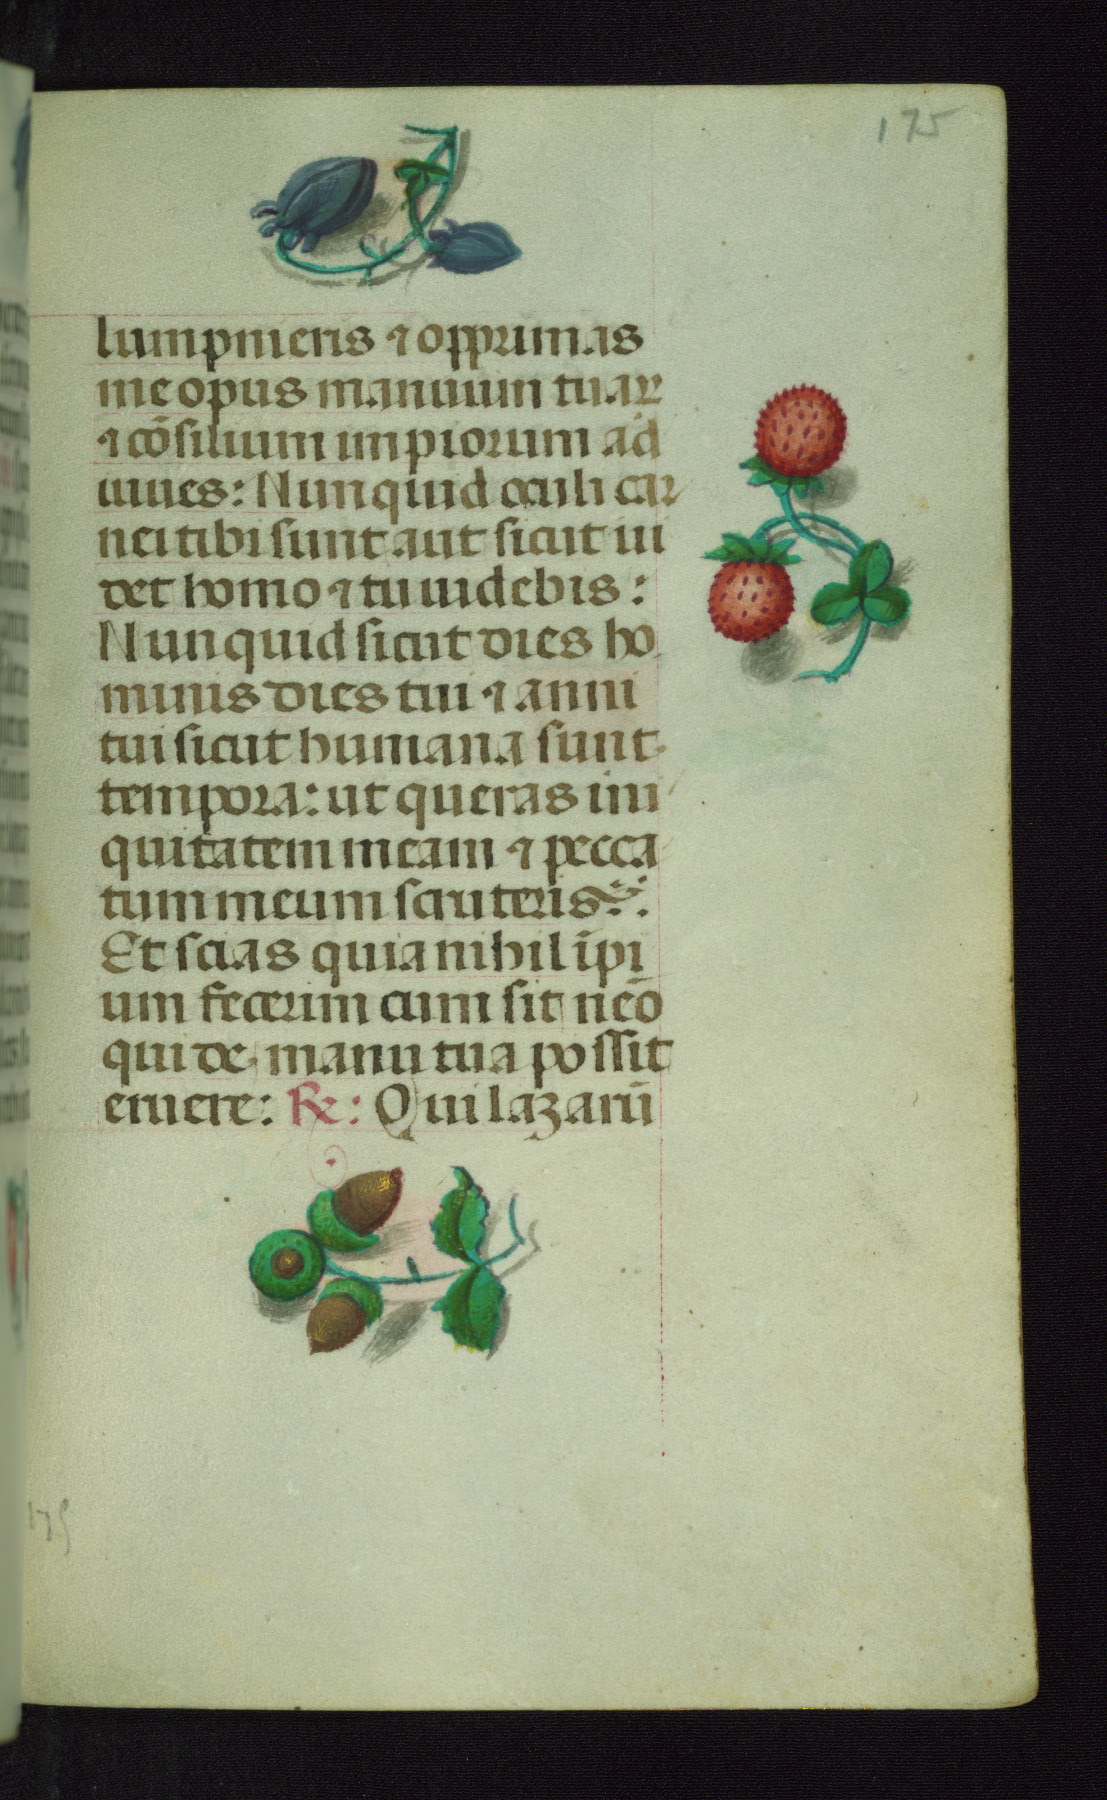 175
lumpnieris ⁊ opprimas
me opus manuum tuaꝝ
⁊ cōsilium impiorum ad
iuues: Nunquid oculi car
nei tibi sunt aut sicut ui
det homo ⁊ tu uidebis:
Nunquid sicut dies ho
minis dies tui ⁊ anni
tui sicut humana sunt
tempora: ut queras ini
quitatem meam ⁊ pecca
tum meum scruteris:
Et scias quia nihil īpi
um fecerim cum sit nēo
qui de manu tua possit
eruere: ℟: Qui lazarū
175